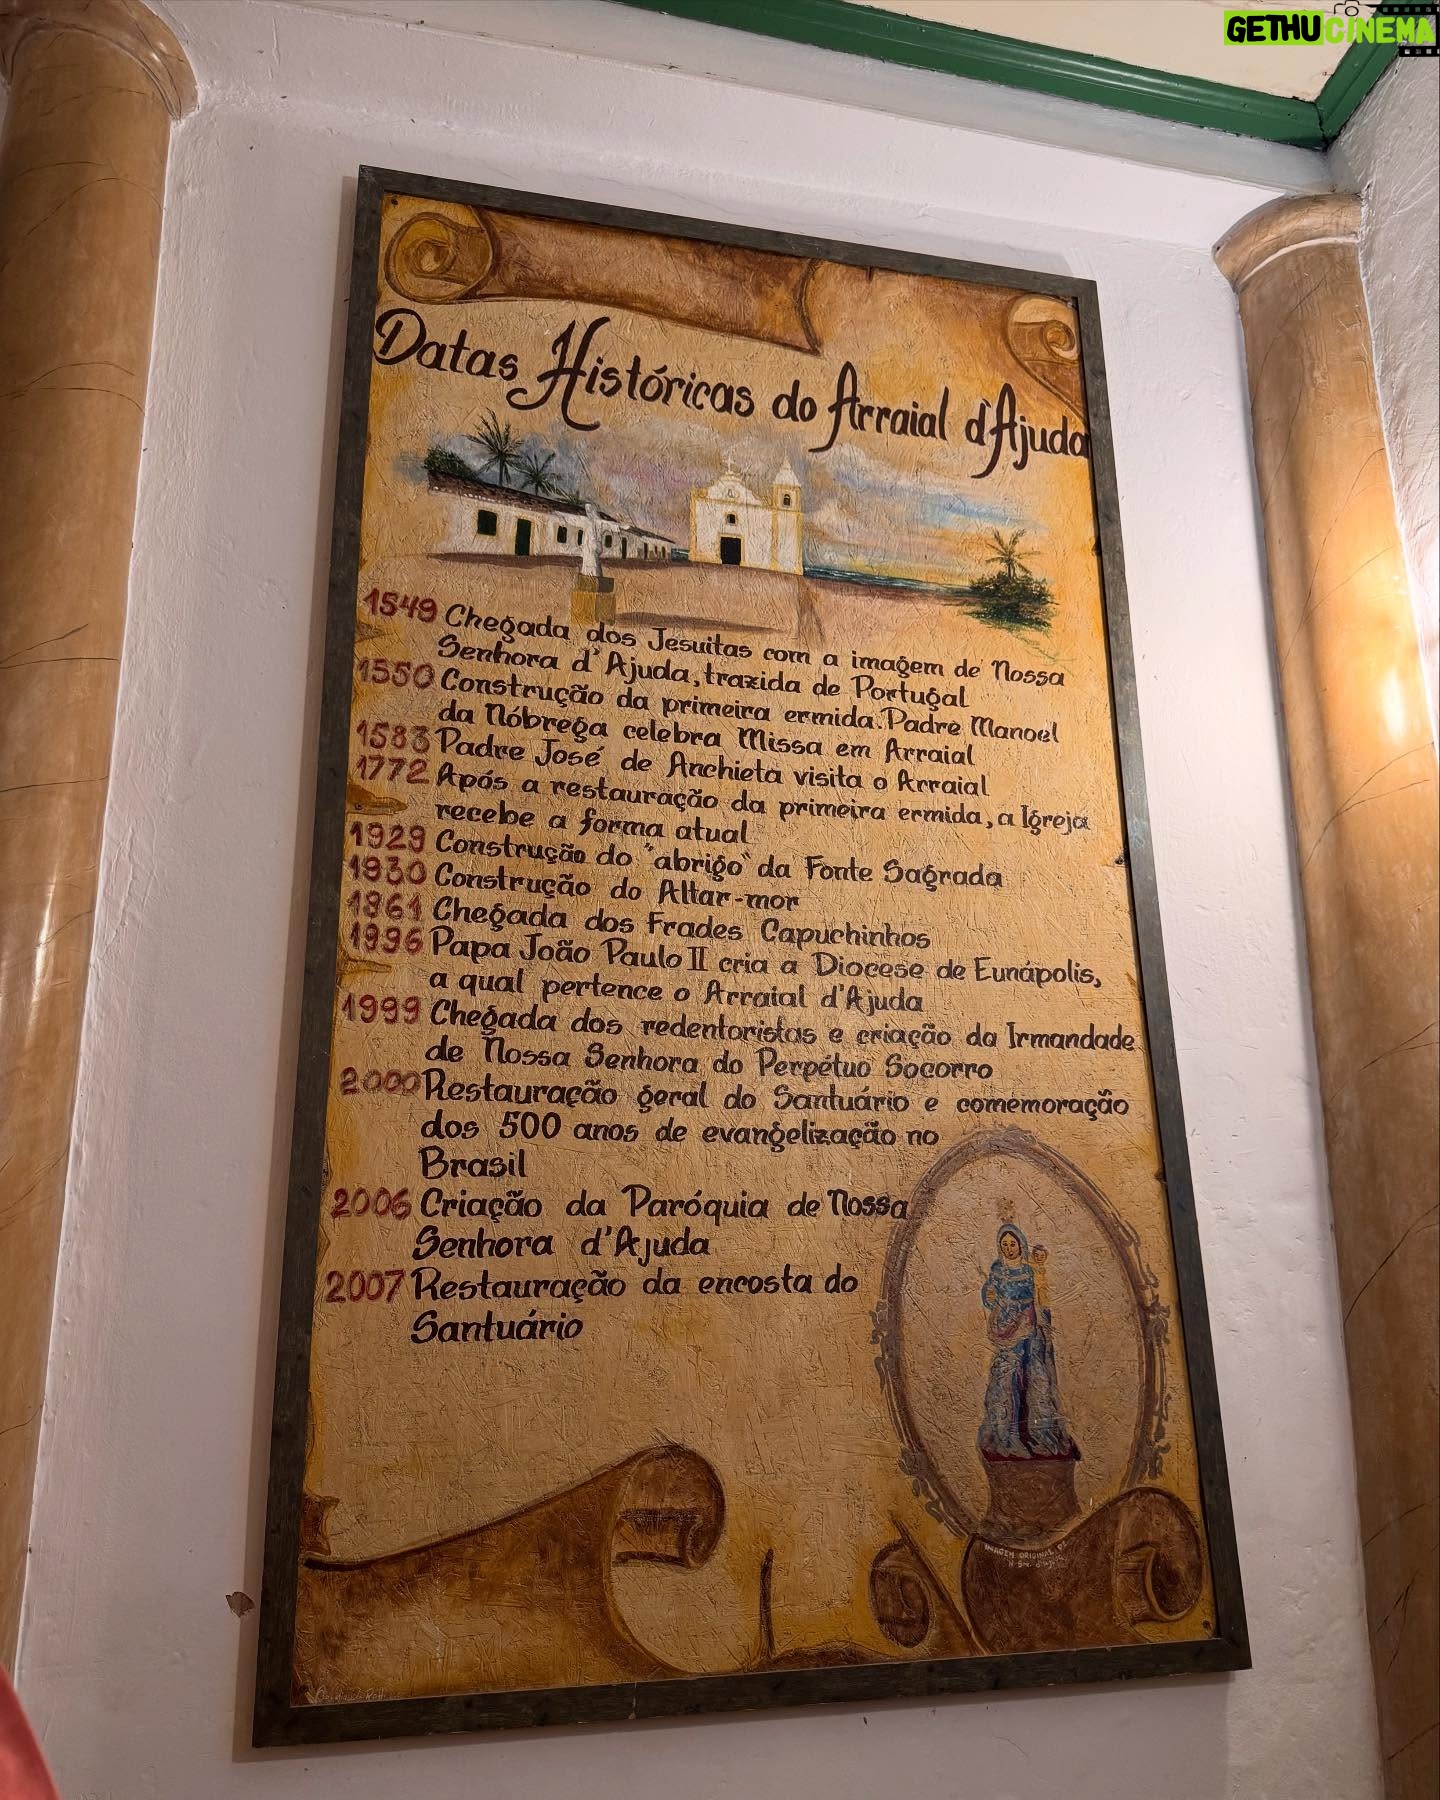 GETHU CINEMA
Datas Históricas do Arraial d'Ajuda
1549 Chegada dos Jesuitas com a imagem de Nossa
Senhora d'Ajuda, trazida de Portugal
1550 Construção da primeira ermida. Padre Manoel
da Nóbrega celebra Missa em Arraial
1583 Padre José de Anchieta visita o Arraial
1772 Após a restauração da primeira ermida, a Igreja
recebe a forma atual
1929 Construção do "abrigo" da Fonte Sagrada
1930 Construção do Altar-mor
1961 Chegada dos Frades Capuchinhos
1996 Papa João Paulo II cria a Diocese de Eunápolis,
a qual pertence o Arraial d'Ajuda
1999 Chegada dos redentoristas e criação da Irmandade
de Nossa Senhora do Perpétuo Socorro
2000 Restauração geral do Santuário e comemoração
dos 500 anos de evangelização no
Brasil
2006 Criação da Paróquia de Nossa
Senhora d'Ajuda
2007 Restauração da encosta do
Santuário
IMAGEM ORIGINAL DE